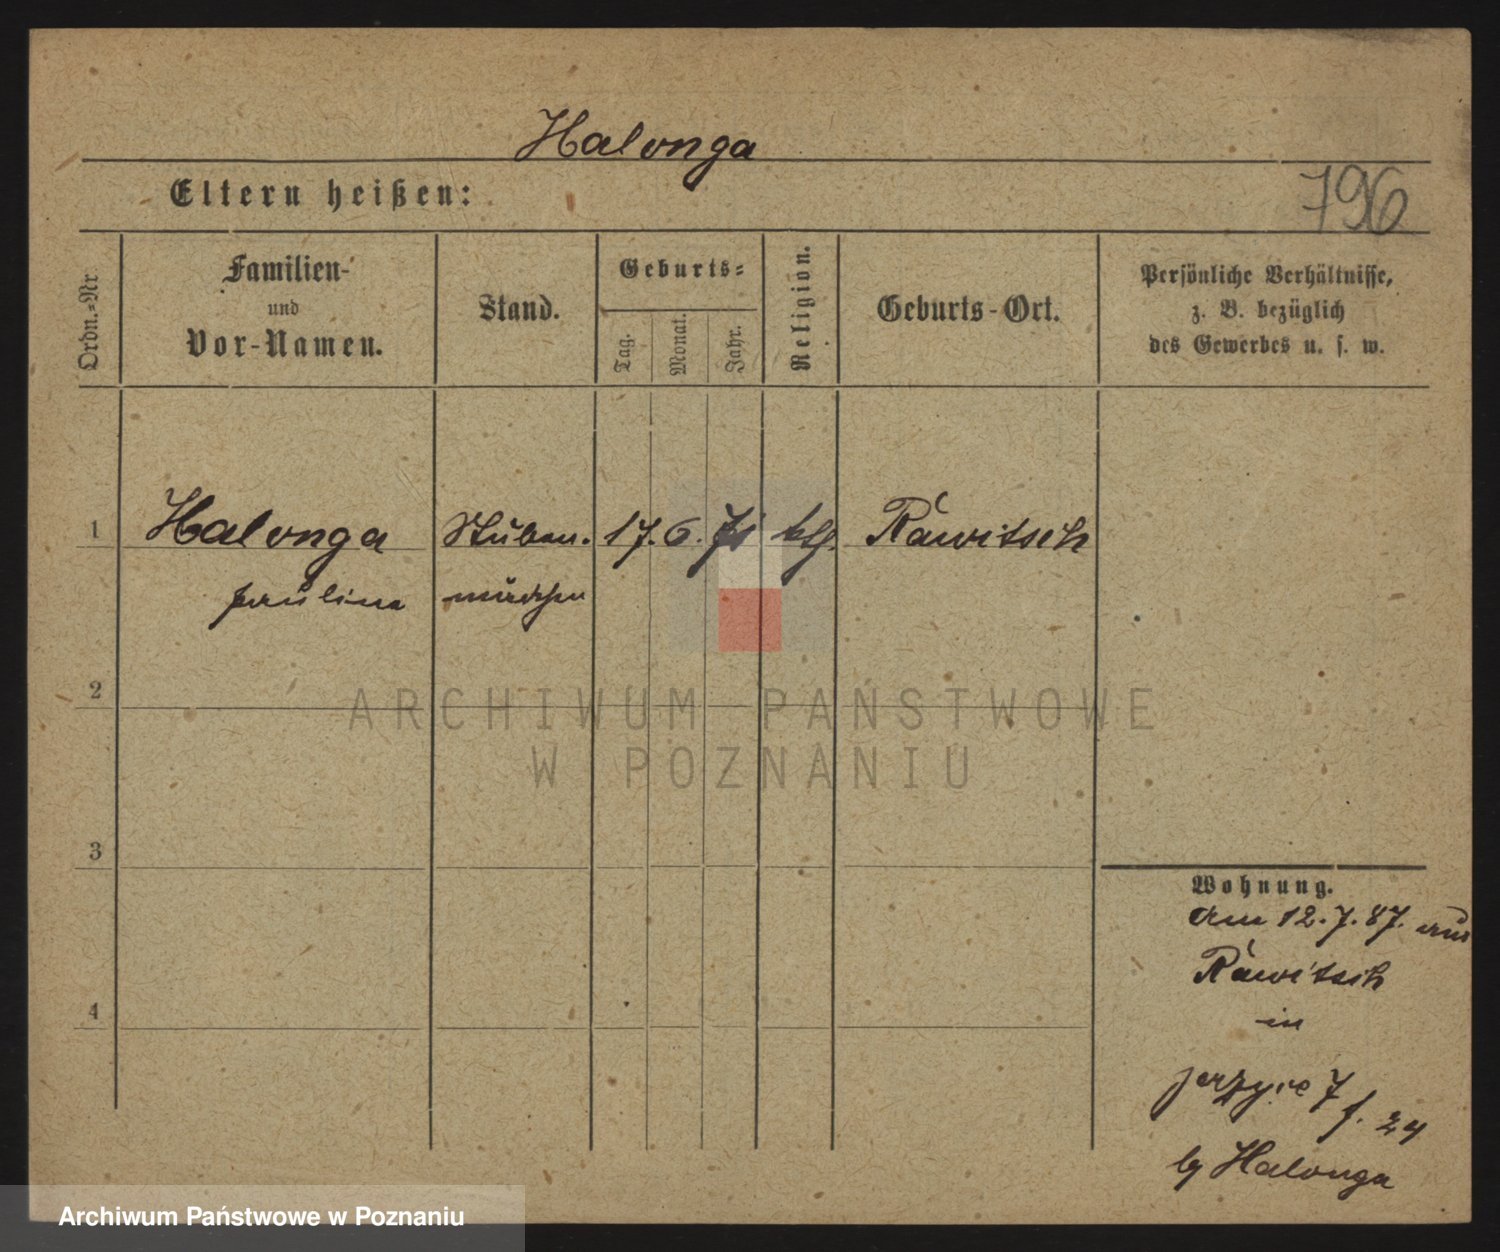 Halonga
Eltern heißen:
796
Ordn.-Nr
Familien-
und
Vor-Namen.
Stand.
Geburts-
Tag.
Monat.
Jahr.
Religion.
Geburts-Ort.
Persönliche Verhältnisse,
z. B. bezüglich
des Gewerbes u. s. w.
1
Halonga Stuben. 17. 6. 71 Rawitsch
paulina mädchen
2
ARCHIWUM PAŃSTWOWE
W POZNANIU
3
Wohnung.
am 12. 7. 87. aus
Rawitsch
4
in
7
f. 24
Halonga
Archiwum Państwowe w Poznaniu